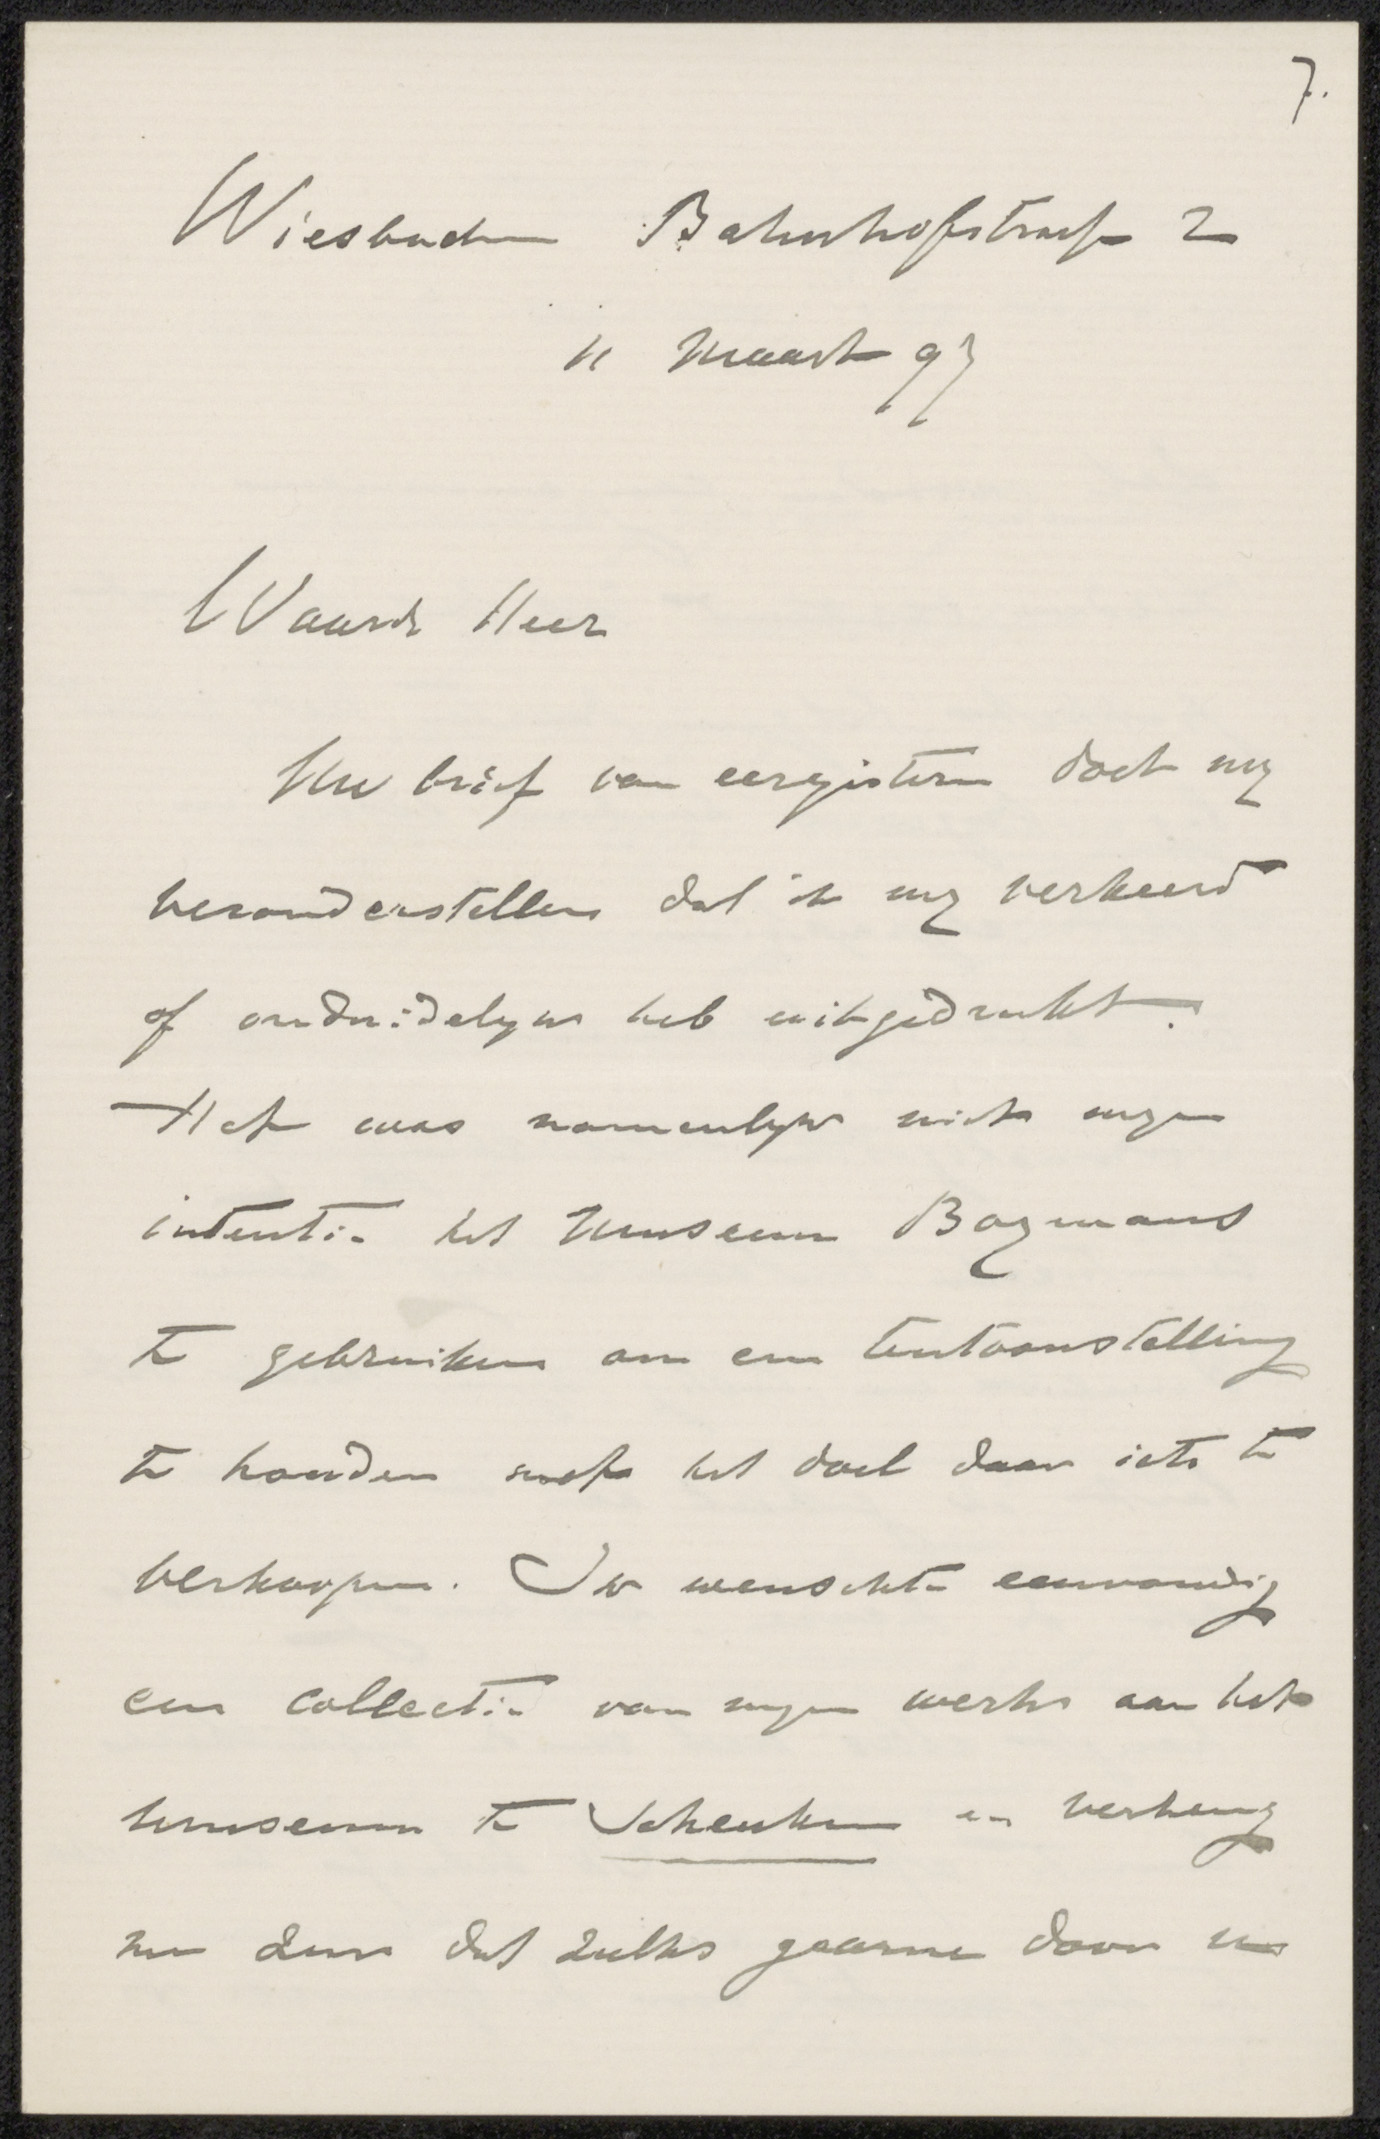 7.
Wiesbaden Bahnhofstrasse 2
11 Maart 97
Waarde Heer
Uw brief van eergisteren doet my
veronderstellen dat ik my verkeerd
of onduidelyk heb uitgedrukt.
Het was namenlyk niet myn
intentie het Museum Boymans
te gebruiken om een tentoonstelling
te houden met het doel daar iets te
verkoopen. Ik wenschte eenvoudig
een collectie van myn werks aan het
Museum te schenken en verheug
me zeer dat zulks gaarne door u